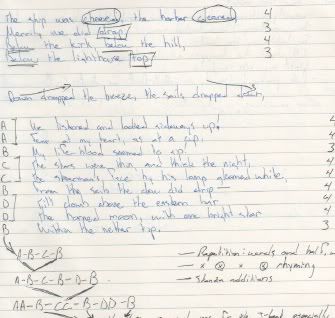 The ship was cheered, the harbor cleared 4
Merrily we did drop 3
Below the kirk, below the hill, 4
Below the lighthouse top. 3
Down dropped the breeze, the sails dropped
A We listened and looked sideways up! 4
A Fear at my heart, as at a cup,
B My life-blood seemed to sip! 3
C The stars were thin, and thick the night, 4
C The steersman's face by his lamp gleamed white, 4
B From the sails the dew did drip—
D Till clomb above the eastern bar 4
D The horned moon, with one bright star 4
B Within the nether tip. 3
A-B-C-B
A-B-C-B-D-B
AA-B-CC-B-DD-B
— Repetition: words and half
— x ⊗ x ⊗ rhyming
— Stanza additions
especially